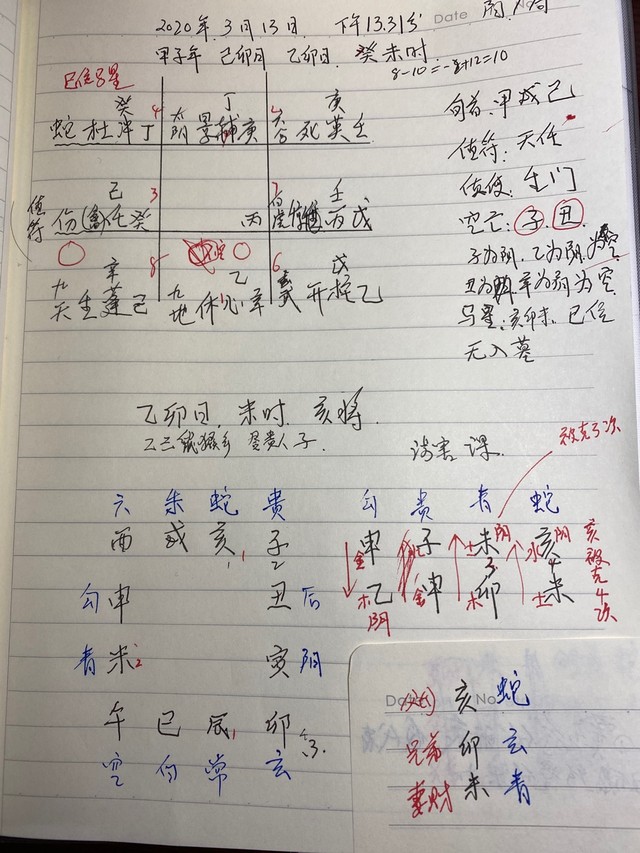 2020年.3月13日. 下午13.31分 Date
甲子年 己卯日 乙卯日. 癸未时
8-10=-2+12=10
癸 4 丁 亥
蛇 杜 丁 景 辅 庚 六合 死 英 壬
旬首:甲戌己
值符:天任
值使:生门
空亡:子.丑
己 3 壬
值符 伤 任 癸 丙 丙 戊
辛 8 乙 6 戊
九天 生 蓬 己 九地 休 心 辛 开 柱 乙
子为阴.乙为阴.为空
丑为阴 辛为阴为空
马星:亥卯未.巳位
无入墓
乙卯日.未时.亥将.
乙三鼠猴乡 登贵人子.
涉害课.
被克3次
六 朱 蛇 贵 勾 贵 青 蛇
酉 戌 亥1 子2 金申 子 土未阴3 水亥阴4
勾 申 丑 后 木乙阴 金申 木卯 土未
亥被克4次
青 未2 寅 阴
午 巳 辰1 卯3
空 白 常 玄
Date No
亥 蛇
兄弟 卯 玄
妻财 未 青